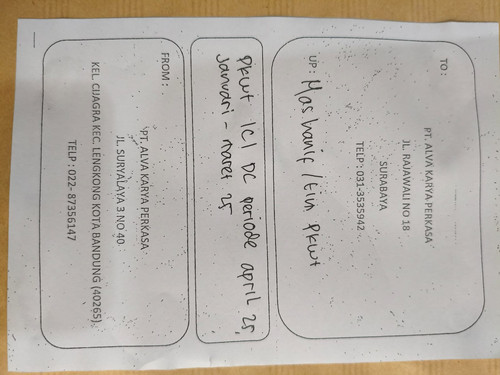 TO :
PT. ALVA KARYA PERKASA
JL. RAJAWALI NO 18
SURABAYA
TELP : 031-3535942
UP : Mas hanif / tim PKWT
PKWT ICI DC periode april 25,
Januari - maret 25
FROM :
PT. ALVA KARYA PERKASA
JL. SURYALAYA 3 NO 40
KEL. CIJAGRA KEC. LENGKONG KOTA BANDUNG (40265)
TELP : 022- 87356147